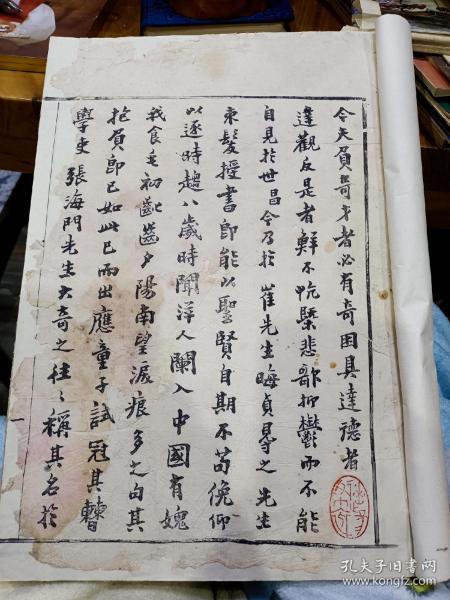 今夫負奇才者必有奇困具達德者
達觀反是者鮮不忼槩悲歌抑鬱而不能
自見於世昌今乃於崔先生晦貞㝵之先生
束髮授書即能以聖賢自期不苟俛仰
以逐時趨八歲時聞洋人闌入中國有媿
我食毛初齔齒戶陽南望淚痕多之句其
抱負即已如此已而出應童子試冠其曹
學使張海門先生大奇之往々稱其名於
一
孔夫子旧书网
www.kongfz.com